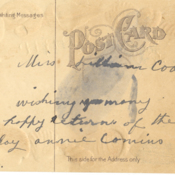 POST CARD
Miss William Coo
wishing many
happy returns of the
day annie Comins
This side for the Address only